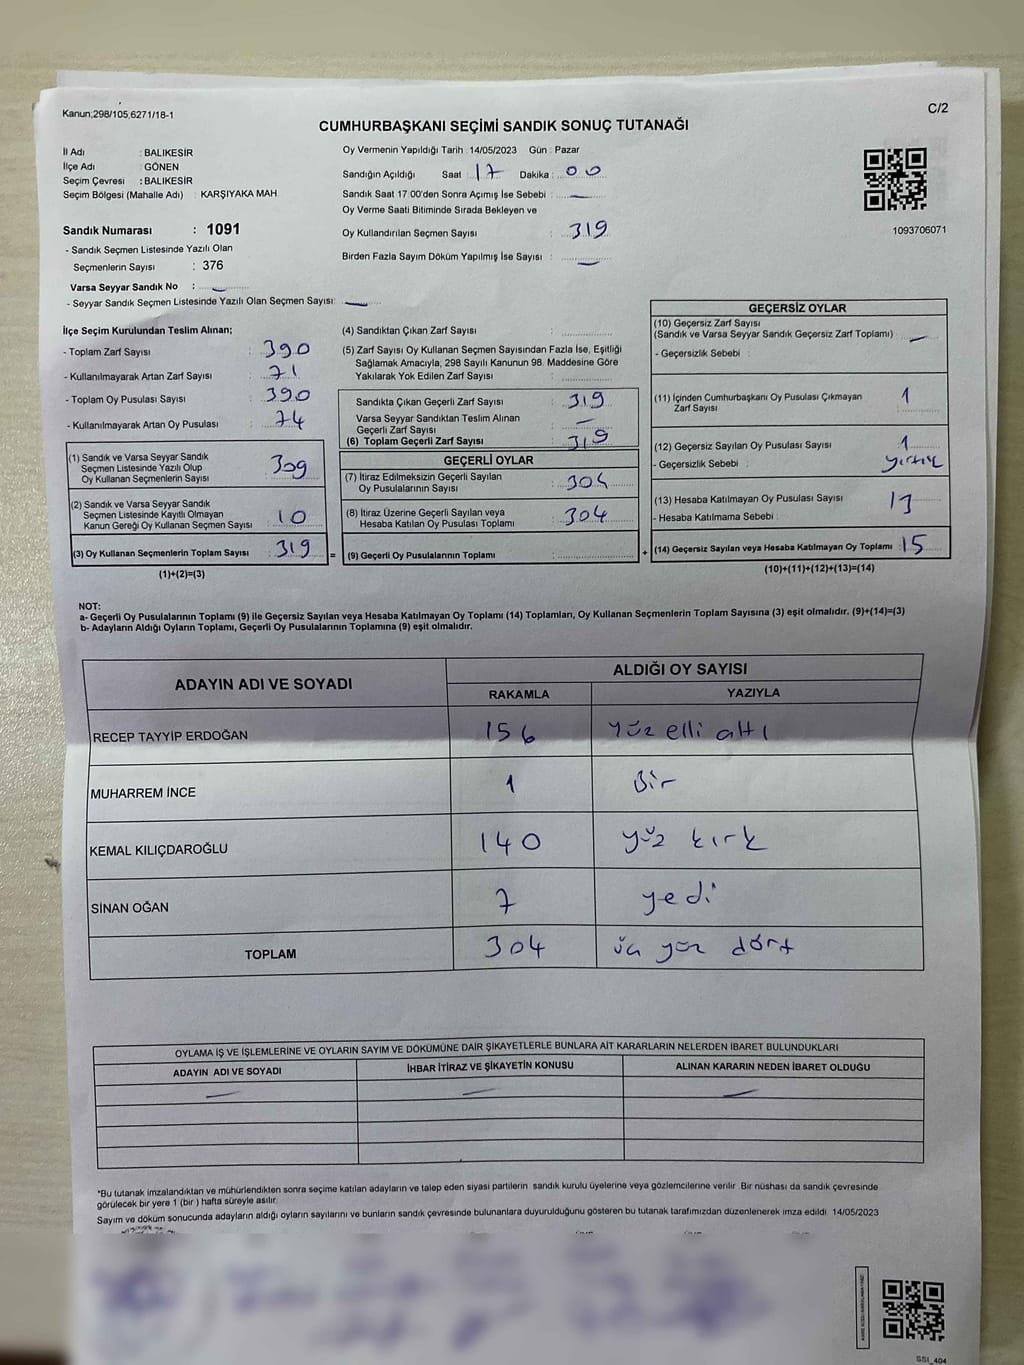 Kanun;298/105,6271/18-1
C/2
CUMHURBAŞKANI SEÇİMİ SANDIK SONUÇ TUTANAĞI
İl Adı : BALIKESİR
İlçe Adı : GÖNEN
Seçim Çevresi : BALIKESİR
Seçim Bölgesi (Mahalle Adı) : KARŞIYAKA MAH.
Sandık Numarası : 1091
- Sandık Seçmen Listesinde Yazılı Olan
Seçmenlerin Sayısı : 376
Varsa Seyyar Sandık No : —
- Seyyar Sandık Seçmen Listesinde Yazılı Olan Seçmen Sayısı: —
Oy Vermenin Yapıldığı Tarih : 14/05/2023 Gün : Pazar
Sandığın Açıldığı Saat : 17 Dakika : 00
Sandık Saat 17:00'den Sonra Açımış İse Sebebi : —
Oy Verme Saati Bitiminde Sırada Bekleyen ve
Oy Kullandırılan Seçmen Sayısı : 319
Birden Fazla Sayım Döküm Yapılmış İse Sayısı : —
1093706071
İlçe Seçim Kurulundan Teslim Alınan;
- Toplam Zarf Sayısı : 390
- Kullanılmayarak Artan Zarf Sayısı : 71
- Toplam Oy Pusulası Sayısı : 390
- Kullanılmayarak Artan Oy Pusulası : 74
(1) Sandık ve Varsa Seyyar Sandık
Seçmen Listesinde Yazılı Olup
Oy Kullanan Seçmenlerin Sayısı : 309
(2) Sandık ve Varsa Seyyar Sandık
Seçmen Listesinde Kayıtlı Olmayan
Kanun Gereği Oy Kullanan Seçmen Sayısı : 10
(3) Oy Kullanan Seçmenlerin Toplam Sayısı : 319
(1)+(2)=(3)
(4) Sandıktan Çıkan Zarf Sayısı :
(5) Zarf Sayısı Oy Kullanan Seçmen Sayısından Fazla İse, Eşitliği
Sağlamak Amacıyla, 298 Sayılı Kanunun 98. Maddesine Göre
Yakılarak Yok Edilen Zarf Sayısı :
Sandıkta Çıkan Geçerli Zarf Sayısı : 319
Varsa Seyyar Sandıktan Teslim Alınan
Geçerli Zarf Sayısı : —
(6) Toplam Geçerli Zarf Sayısı : 319
GEÇERLİ OYLAR
(7) İtiraz Edilmeksizin Geçerli Sayılan
Oy Pusulalarının Sayısı : 304
(8) İtiraz Üzerine Geçerli Sayılan veya
Hesaba Katılan Oy Pusulası Toplamı : 304
= (9) Geçerli Oy Pusulalarının Toplamı :
GEÇERSİZ OYLAR
(10) Geçersiz Zarf Sayısı
(Sandık ve Varsa Seyyar Sandık Geçersiz Zarf Toplamı) : —
- Geçersizlik Sebebi :
(11) İçinden Cumhurbaşkanı Oy Pusulası Çıkmayan
Zarf Sayısı : 1
(12) Geçersiz Sayılan Oy Pusulası Sayısı : 1
- Geçersizlik Sebebi : yırtık
(13) Hesaba Katılmayan Oy Pusulası Sayısı : 13
- Hesaba Katılmama Sebebi :
+ (14) Geçersiz Sayılan veya Hesaba Katılmayan Oy Toplamı : 15
(10)+(11)+(12)+(13)=(14)
NOT:
a- Geçerli Oy Pusulalarının Toplamı (9) ile Geçersiz Sayılan veya Hesaba Katılmayan Oy Toplamı (14) Toplamları, Oy Kullanan Seçmenlerin Toplam Sayısına (3) eşit olmalıdır. (9)+(14)=(3)
b- Adayların Aldığı Oyların Toplamı, Geçerli Oy Pusulalarının Toplamına (9) eşit olmalıdır.
ADAYIN ADI VE SOYADI
ALDIĞI OY SAYISI
RAKAMLA YAZIYLA
RECEP TAYYİP ERDOĞAN 156 Yüz elli altı
MUHARREM İNCE 1 Bir
KEMAL KILIÇDAROĞLU 140 yüz kırk
SİNAN OĞAN 7 yedi
TOPLAM 304 üç yüz dört
OYLAMA İŞ VE İŞLEMLERİNE VE OYLARIN SAYIM VE DÖKÜMÜNE DAİR ŞİKAYETLERLE BUNLARA AİT KARARLARIN NELERDEN İBARET BULUNDUKLARI
ADAYIN ADI VE SOYADI İHBAR İTİRAZ VE ŞİKAYETİN KONUSU ALINAN KARARIN NEDEN İBARET OLDUĞU
— — —
*Bu tutanak imzalandıktan ve mühürlendikten sonra seçime katılan adayların ve talep eden siyasi partilerin sandık kurulu üyelerine veya gözlemcilerine verilir. Bir nüshası da sandık çevresinde
görülecek bir yere 1 (bir) hafta süreyle asılır.
Sayım ve döküm sonucunda adayların aldığı oyların sayılarını ve bunların sandık çevresinde bulunanlara duyurulduğunu gösteren bu tutanak tarafımızdan düzenlenerek imza edildi. 14/05/2023
SSI_404